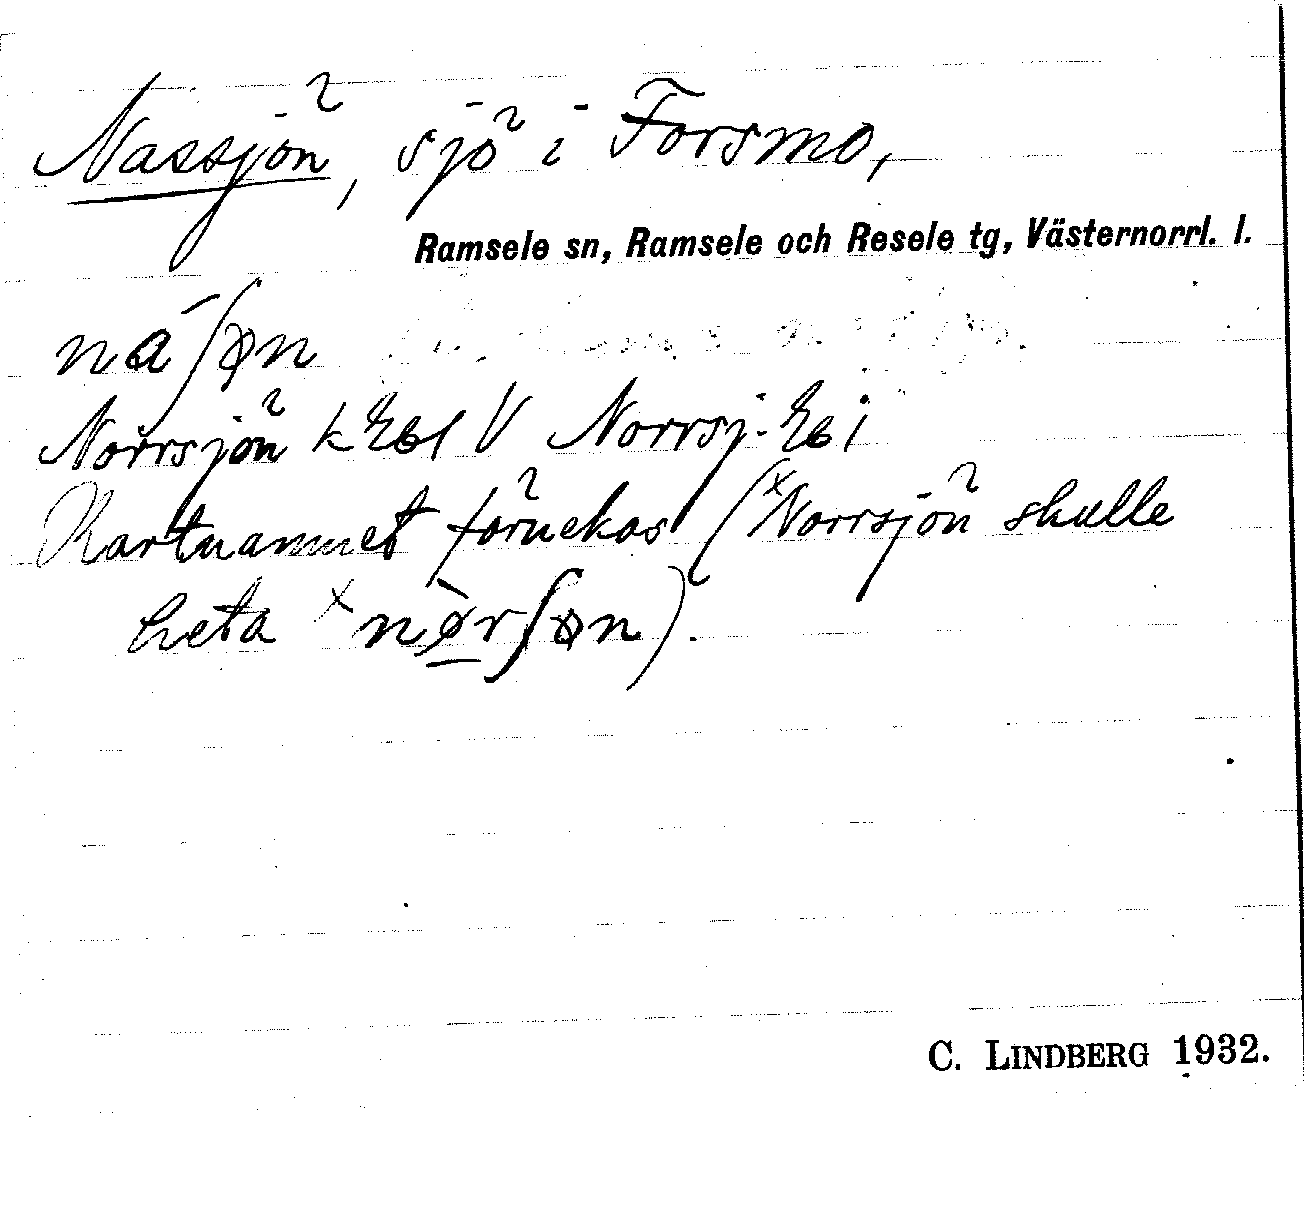 Nassjön, sjö i Forsmo,
Ramsele sn, Ramsele och Resele tg, Västernorrl. l.
náʃøn
Norrsjön k V Norrsj.
Kartnamnet förnekas (ˣNorrsjön skulle
heta ˣnø̀rʃøn).
C. LINDBERG 1932.